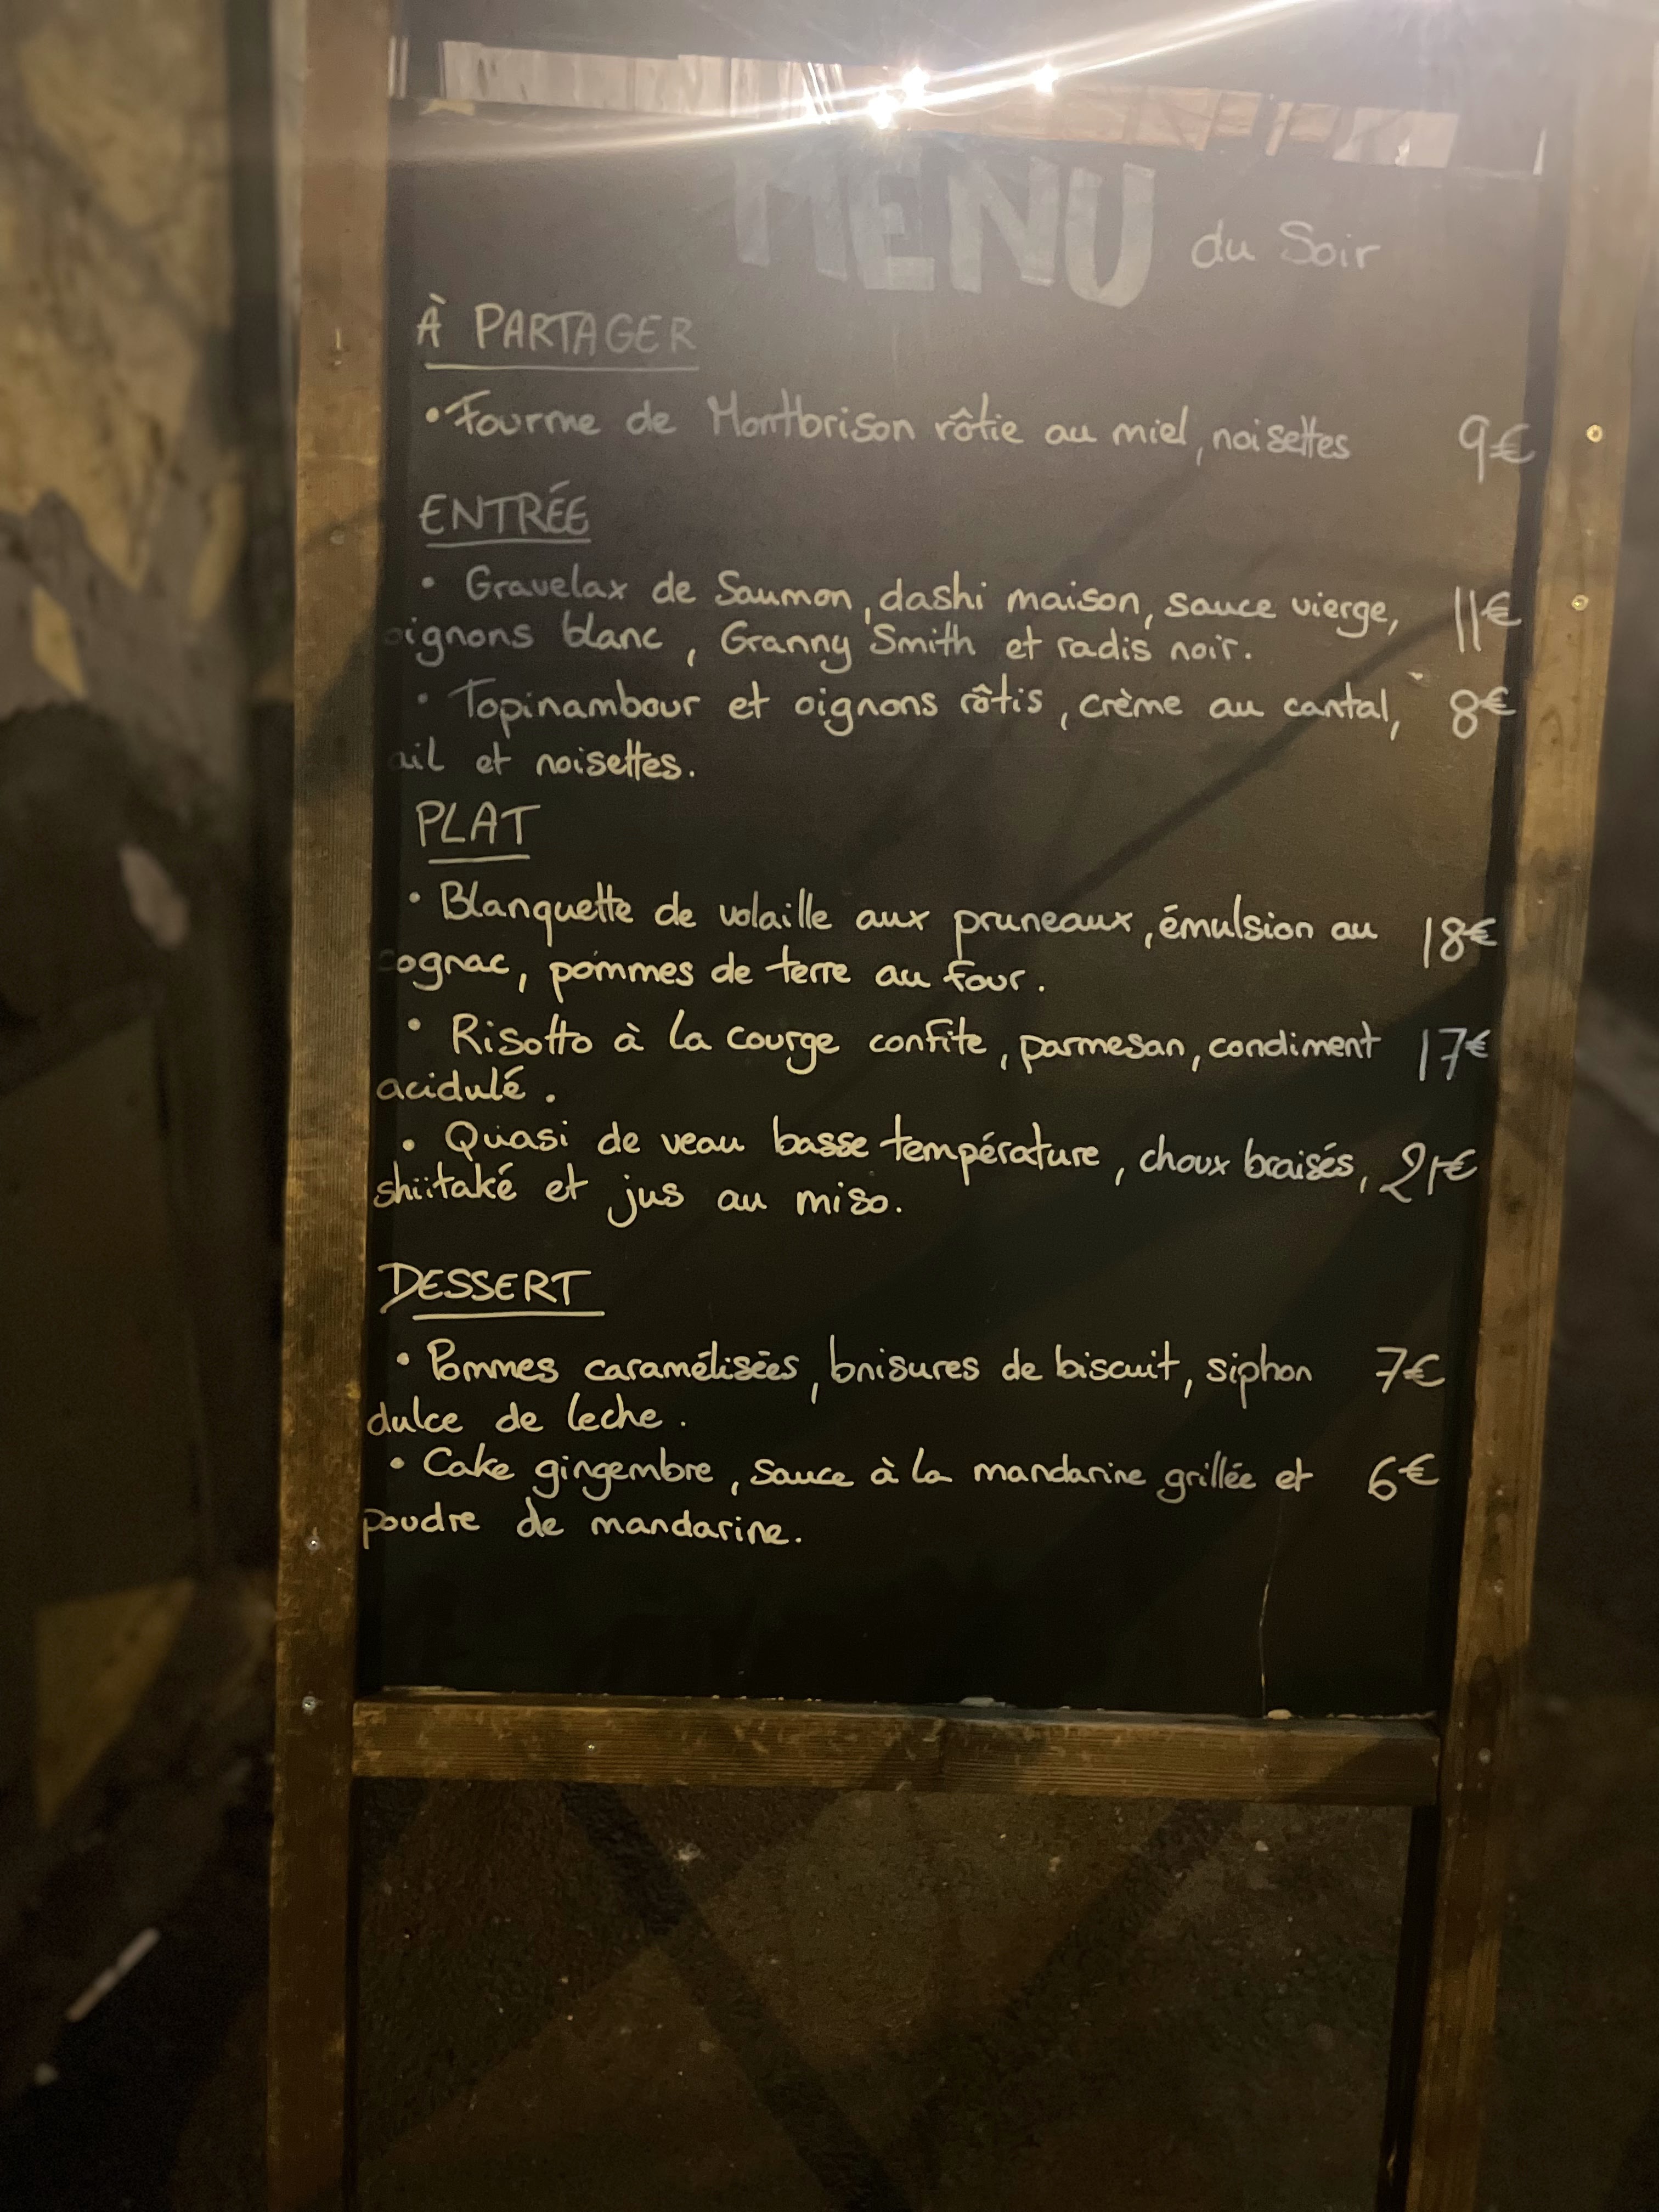 MENU du Soir
À PARTAGER
• Fourme de Montbrison rôtie au miel, noisettes 9€
ENTRÉE
• Gravelax de Saumon, dashi maison, sauce vierge, 11€
oignons blanc, Granny Smith et radis noir.
• Topinambour et oignons rôtis, crème au cantal, 8€
ail et noisettes.
PLAT
• Blanquette de volaille aux pruneaux, émulsion au 18€
cognac, pommes de terre au four.
• Risotto à la courge confite, parmesan, condiment 17€
acidulé.
• Quasi de veau basse température, choux braisés, 21€
shiitaké et jus au miso.
DESSERT
• Pommes caramélisées, brisures de biscuit, siphon 7€
dulce de leche.
• Cake gingembre, Sauce à la mandarine grillée et 6€
poudre de mandarine.